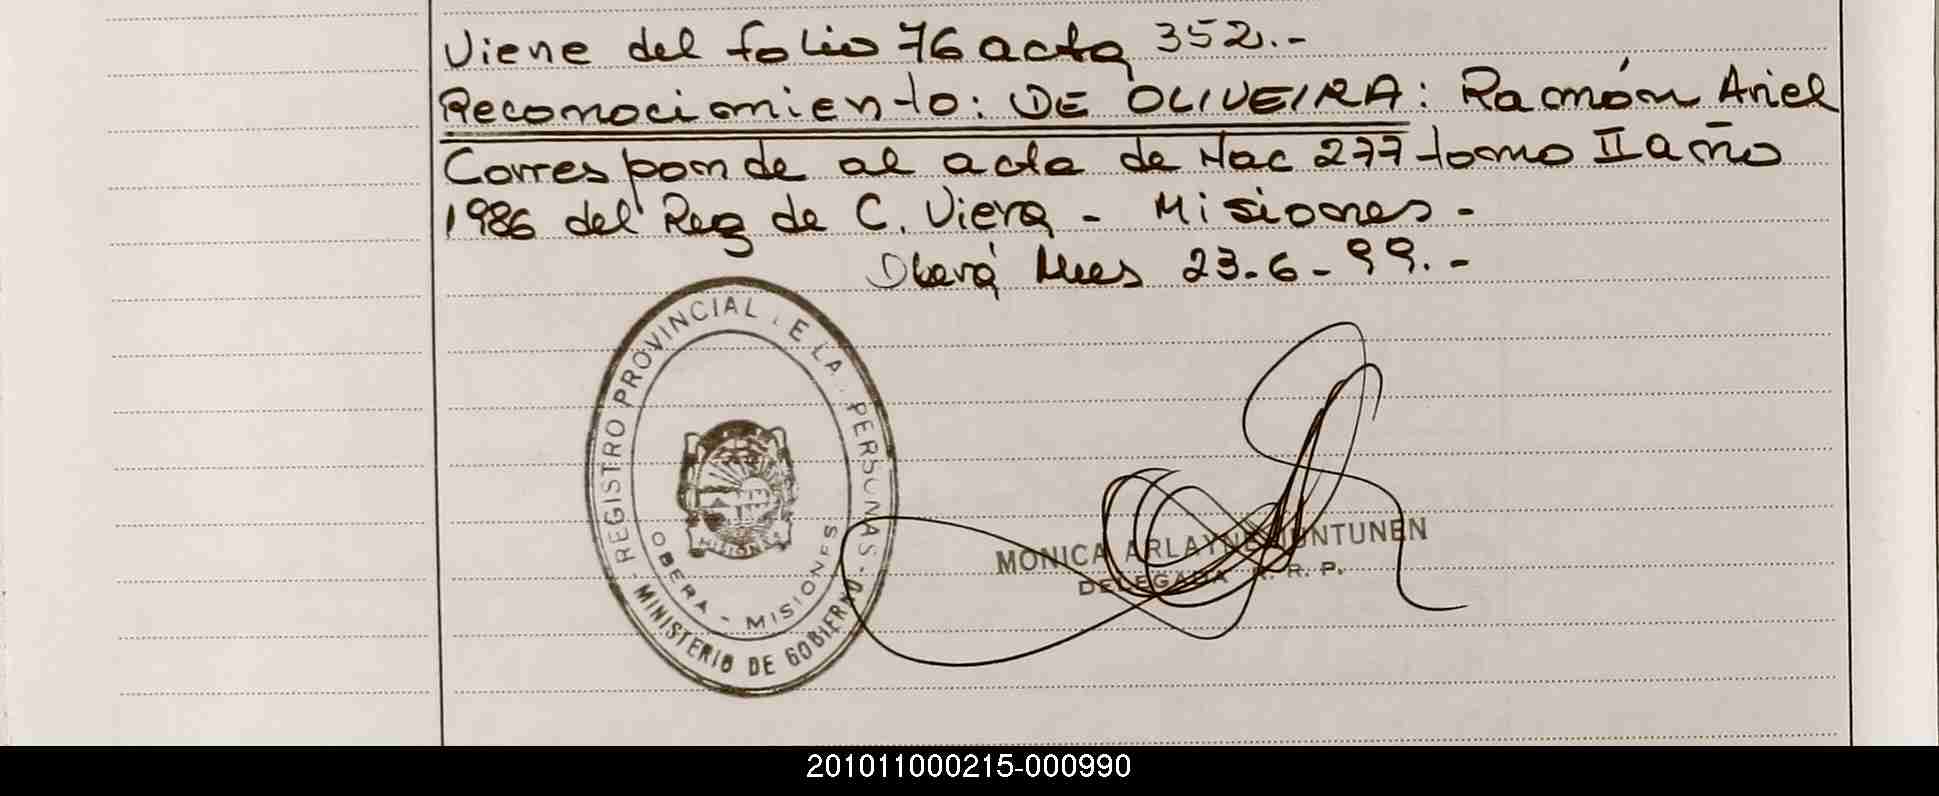 Viene del folio 76 acta 352.-
Reconocimiento: DE OLIVEIRA: Ramón Ariel
Corresponde al acta de Nac 277 tomo II año
1986 del Reg de C. Viera - Misiones -
Oberá Mnes 23-6-99.-
REGISTRO PROVINCIAL E LA PERSONAS
OBERA - MISIONES
MISIONES
MINISTERIO DE GOBIERNO
MONICA ARLAYNE
DELEGADA R. R. P.
201011000215-000990